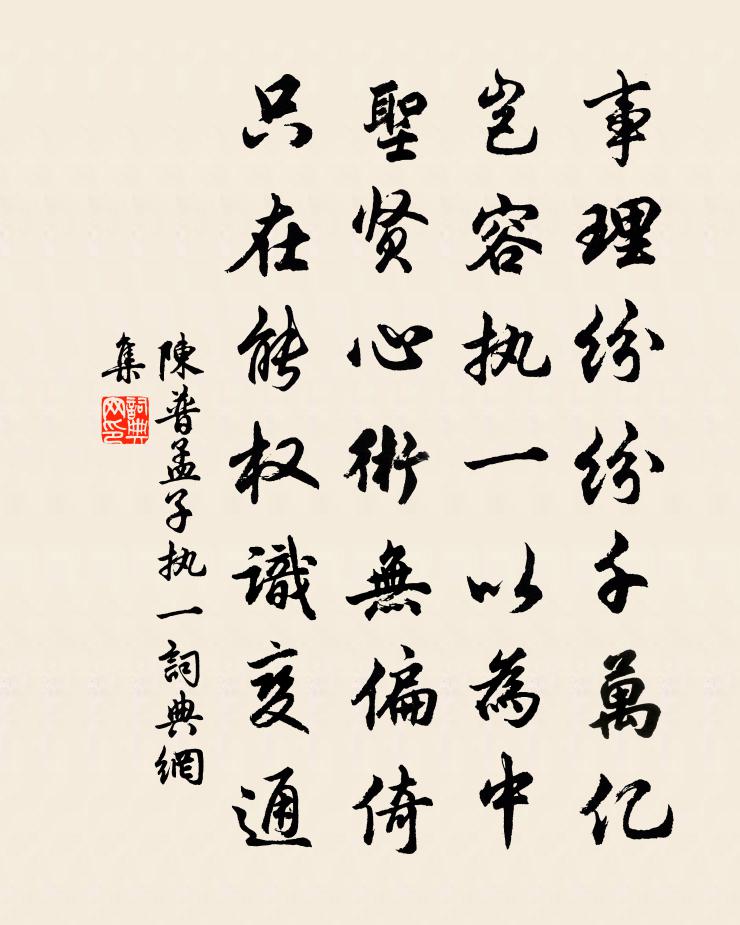 事理纷纷千萬亿
岂容执一以為中
聖贤心術無偏倚
只在能权識变通
陳普孟子执一詞典網
集
詞典网印